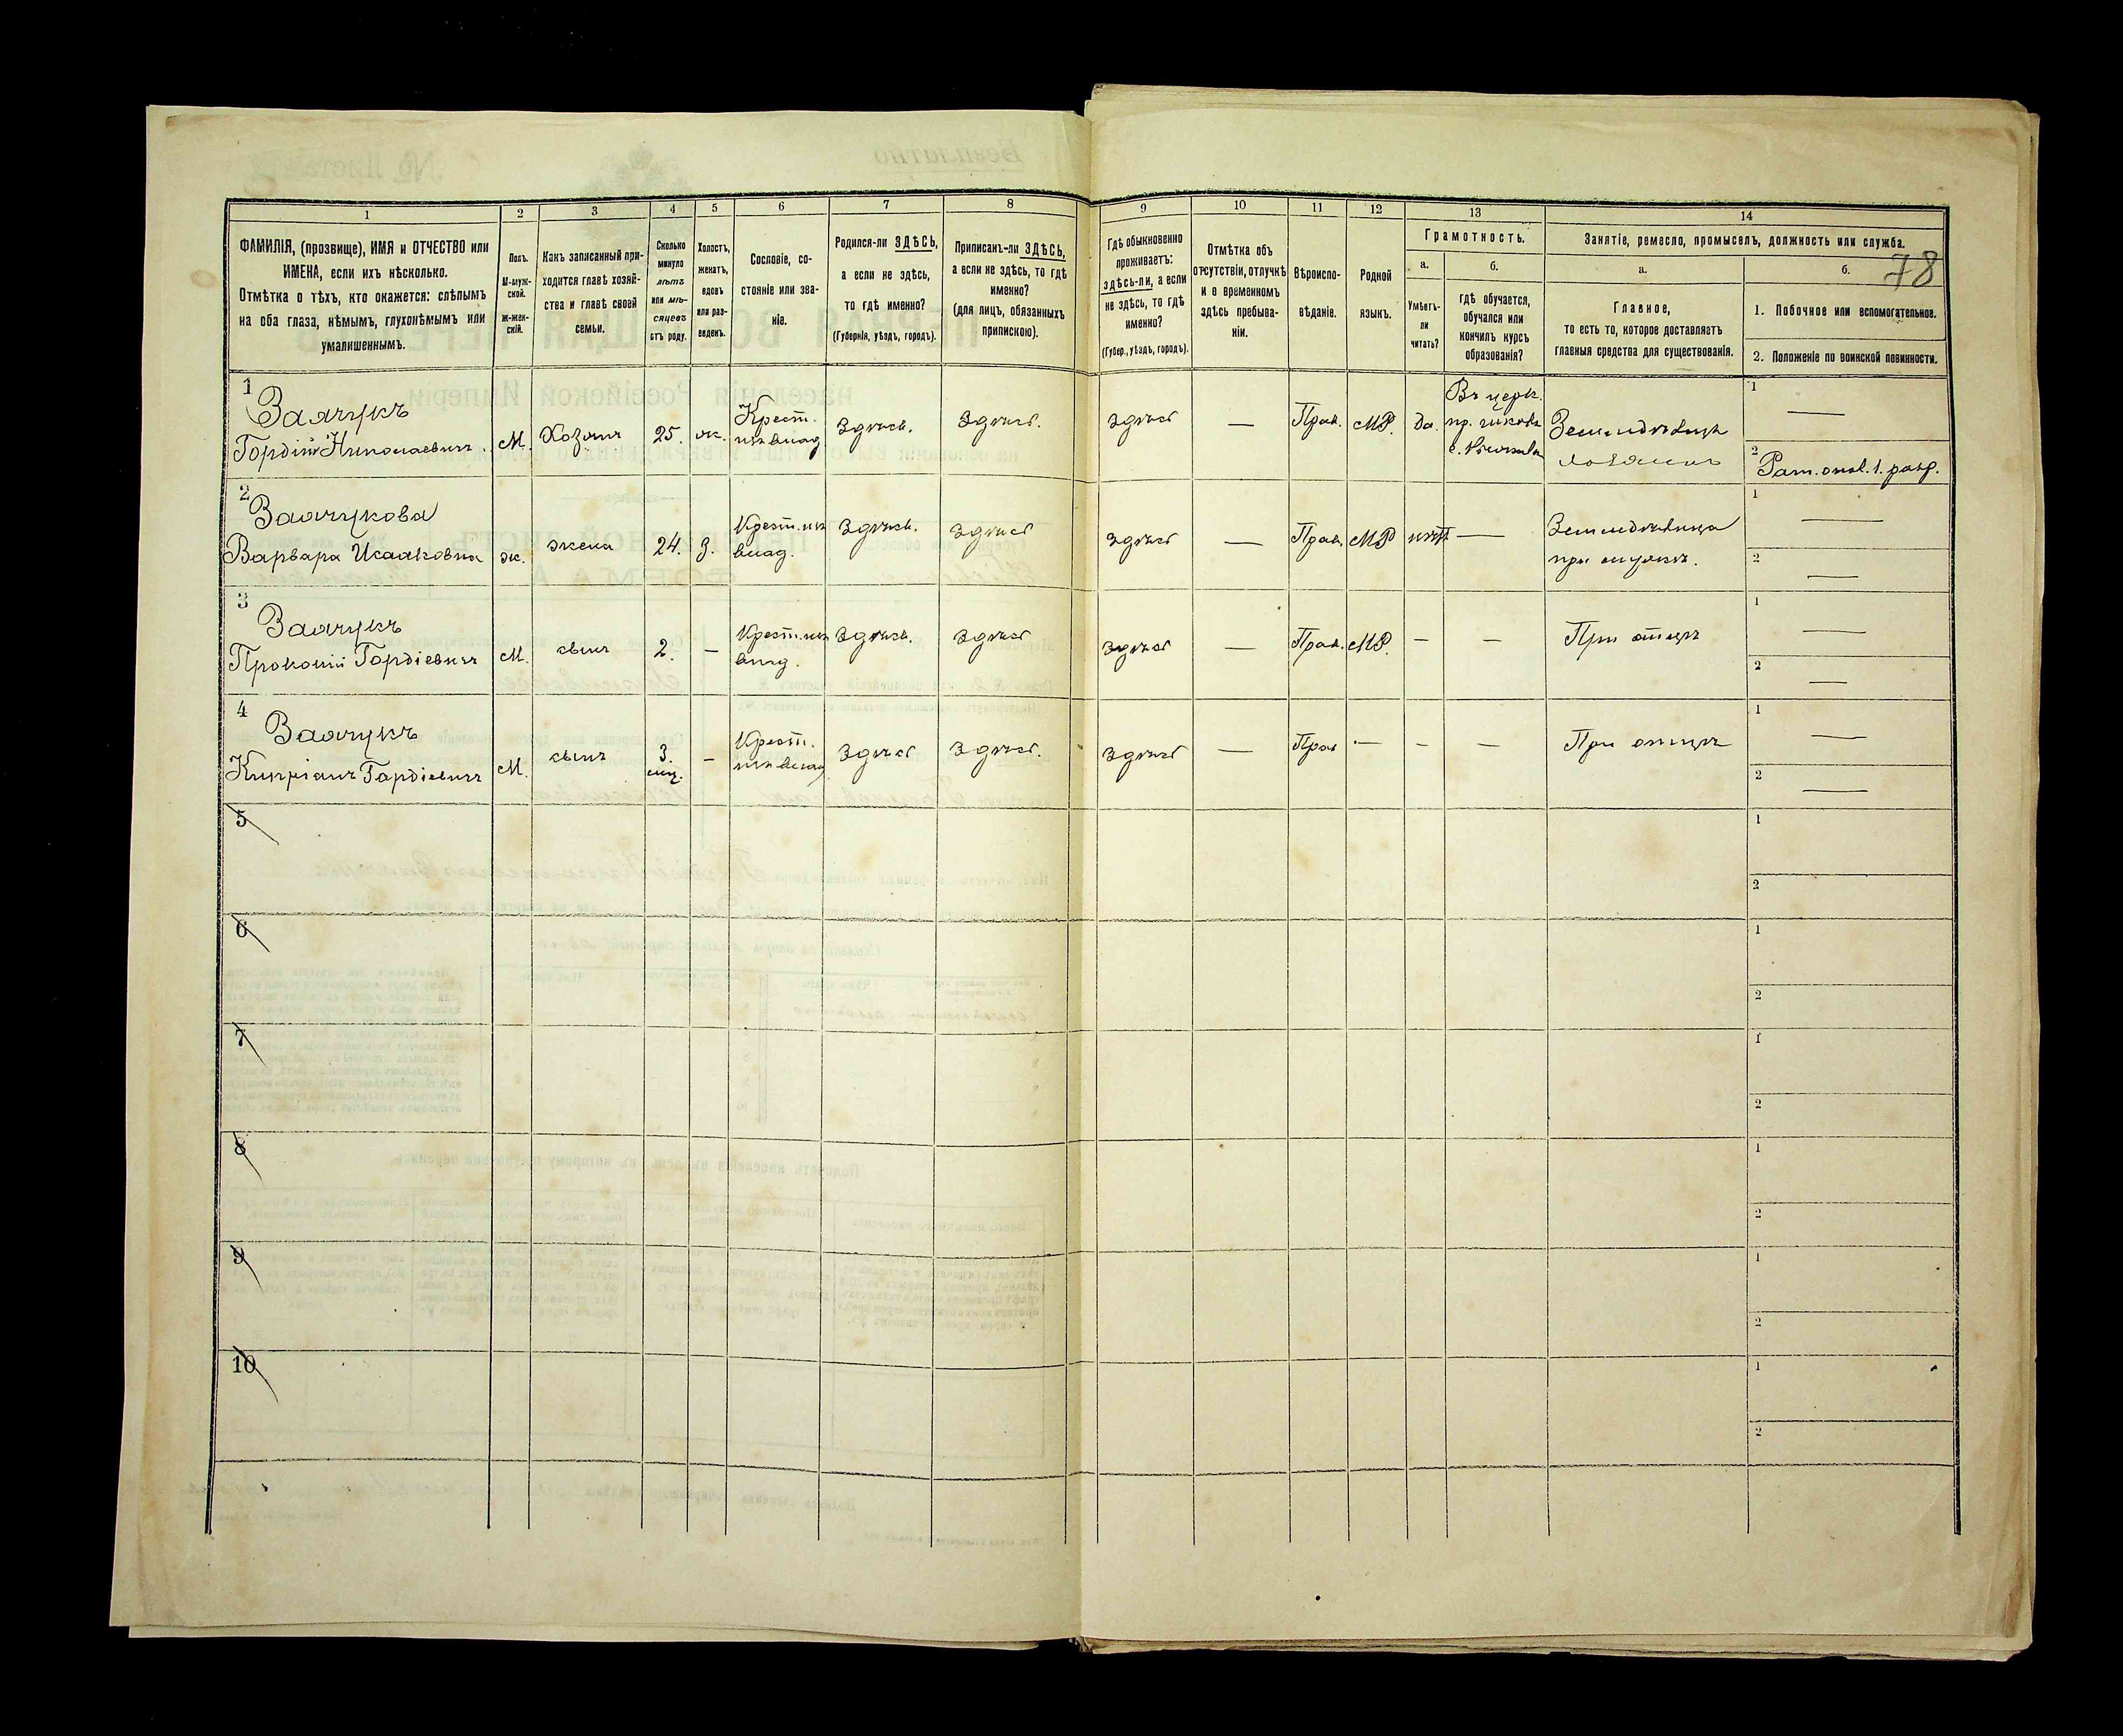 78
1 2 3 4 5 6 7 8 9 10 11 12 13 14
ФАМИЛІЯ, (прозвище), ИМЯ и ОТЧЕСТВО или
ИМЕНА, если ихъ нѣсколько.
Отмѣтка о тѣхъ, кто окажется: слѣпымъ
на оба глаза, нѣмымъ, глухонѣмымъ или
умалишеннымъ.
Полъ.
М-муж-
ской.
Ж-жен-
скій.
Какъ записанный при-
ходится главѣ хозяй-
ства и главѣ своей
семьи.
Сколько
минуло
лѣтъ
или мѣ-
сяцевъ
отъ роду.
Холостъ,
женатъ,
вдовъ
или раз-
веденъ.
Сословіе, со-
стояніе или зва-
ніе.
Родился-ли ЗДѢСЬ,
а если не здѣсь,
то гдѣ именно?
(Губернія, уѣздъ, городъ).
Приписанъ-ли ЗДѢСЬ,
а если не здѣсь, то гдѣ
именно?
(для лицъ, обязанныхъ
припискою).
Гдѣ обыкновенно
проживаетъ:
здѣсь-ли, а если
не здѣсь, то гдѣ
именно?
(Губер., уѣздъ, городъ).
Отмѣтка объ
отсутствіи, отлучкѣ
и о временномъ
здѣсь пребыва-
ніи.
Вѣроиспо-
вѣданіе.
Родной
языкъ.
Грамотность.
а.
Умѣетъ-
ли
читать?
б.
гдѣ обучается,
обучался или
кончилъ курсъ
образованія?
Занятіе, ремесло, промыселъ, должность или служба.
а.
Главное,
то есть то, которое доставляетъ
главныя средства для существованія.
б.
1. Побочное или вспомогательное.
2. Положеніе по воинской повинности.
1
Заячукъ
Гордій Николаевичъ.
М.
Хозяинъ
25.
ж.
Крест.
изъ влад
Здѣсь.
Здѣсь.
Здѣсь
—
Прав.
МР.
да.
Въ церк.
пр. школѣ
Земледѣлецъ
хозяинъ
1 —
2 Рат. опол. 1. разр.
2
Заячукова
Варвара Исааковна
ж.
жена
24.
З.
Крест. изъ
влад.
Здѣсь.
Здѣсь
Здѣсь
—
Прав.
МР
нѣтъ
—
Земледѣлица
при мужѣ.
1 —
2 —
3
Заячукъ
Прокопій Гордіевичъ
М.
сынъ
2.
—
Крест. изъ
влад.
Здѣсь.
Здѣсь
Здѣсь
—
Прав.
МР.
—
—
При отцѣ
1 —
2 —
4
Заячукъ
Кипріанъ Гордіевичъ
М.
сынъ
3.
мѣс.
—
Крест.
изъ влад
Здѣсь
Здѣсь.
Здѣсь
—
Прав
—
—
—
При отцѣ
1 —
2 —
5
1
2
6
1
2
7
1
2
8
1
2
9
1
2
10
1
2